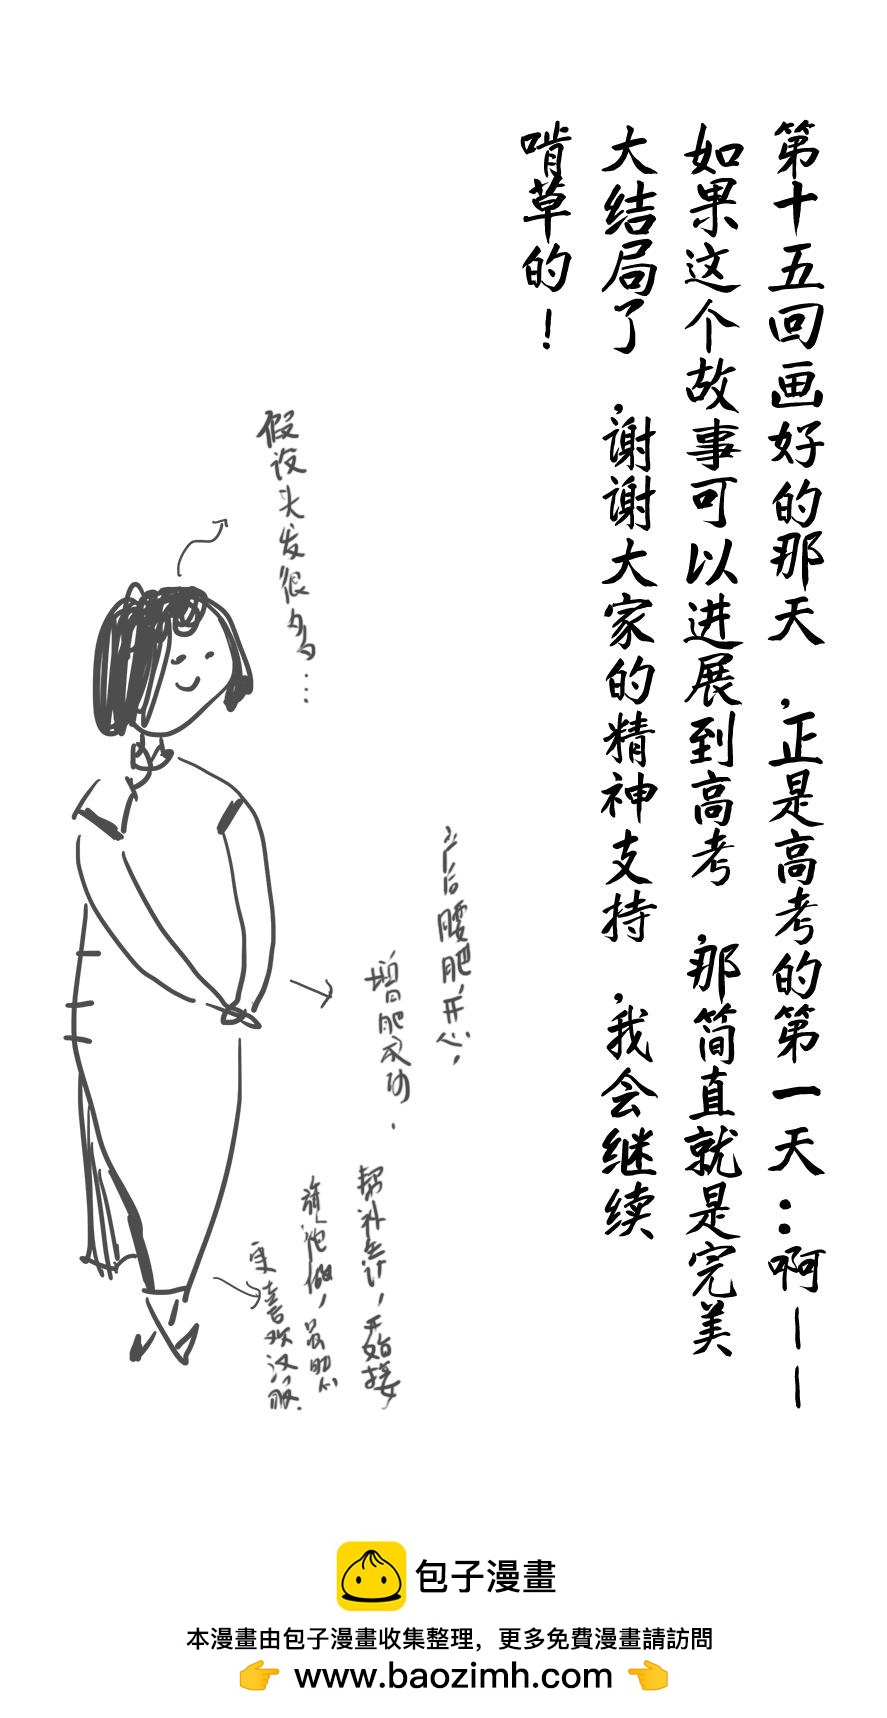 第十五回画好的那天,正是高考的第一天:啊——
如果这个故事可以进展到高考,那简直就是完美
大结局了,谢谢大家的精神支持,我会继续
啃草的!
假设头发很多...
产后腰肥,开心,
增肥成功.
帮补生计,开始接
旗袍做,
更喜欢汉服.
包子漫畫
本漫畫由包子漫畫收集整理，更多免費漫畫請訪問
👉 www.baozimh.com 👈